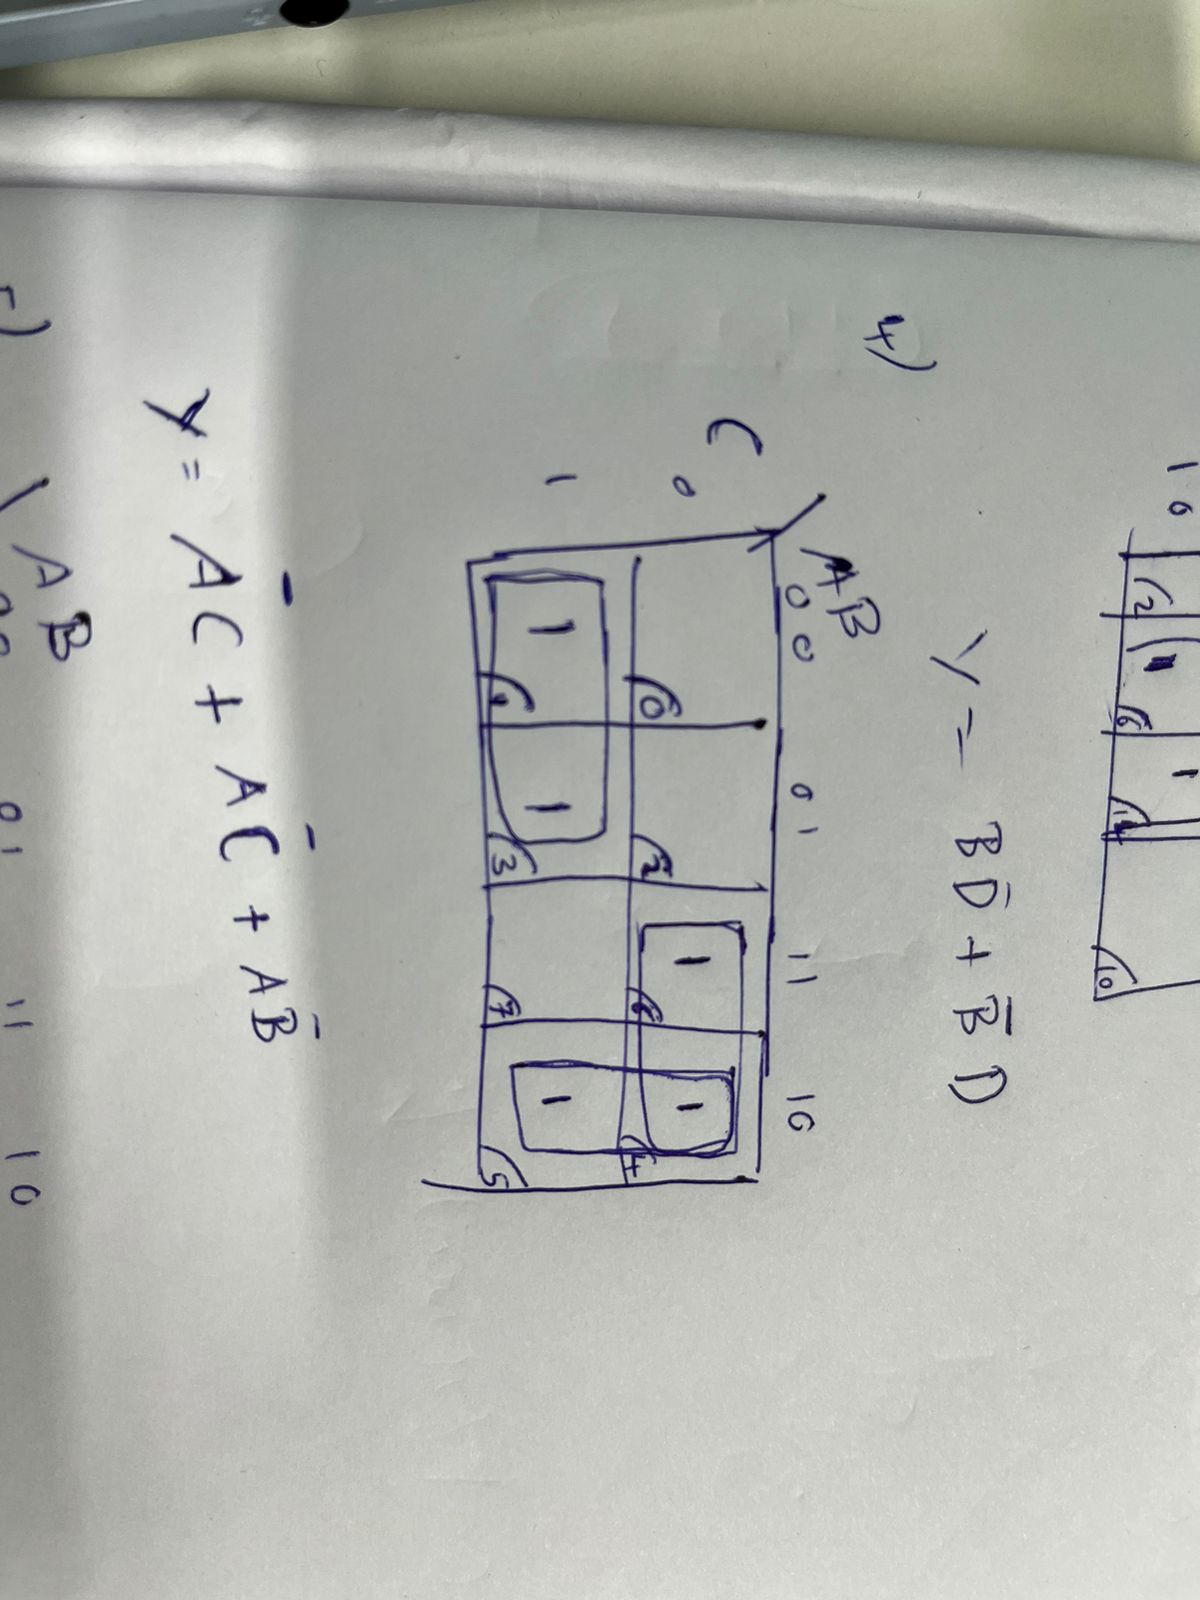 10
2
1
6
1
14
10
Y = BD̅ + B̅D
4)
AB
00 01 11 10
C
0 0 2 1 6 1 4
1 1 1 1 3 7 1 5
Y = A̅C + AC̅ + AB̅
5)
AB
00 01 11 10